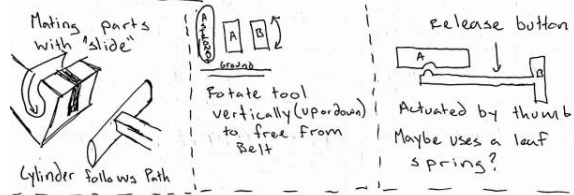 Mating parts
with "slide"
Cylinder follows Path
A
B
Ground
Rotate tool
vertically (up or down)
to free from
Belt
Release button
A
B
Actuated by thumb
Maybe uses a leaf
spring?